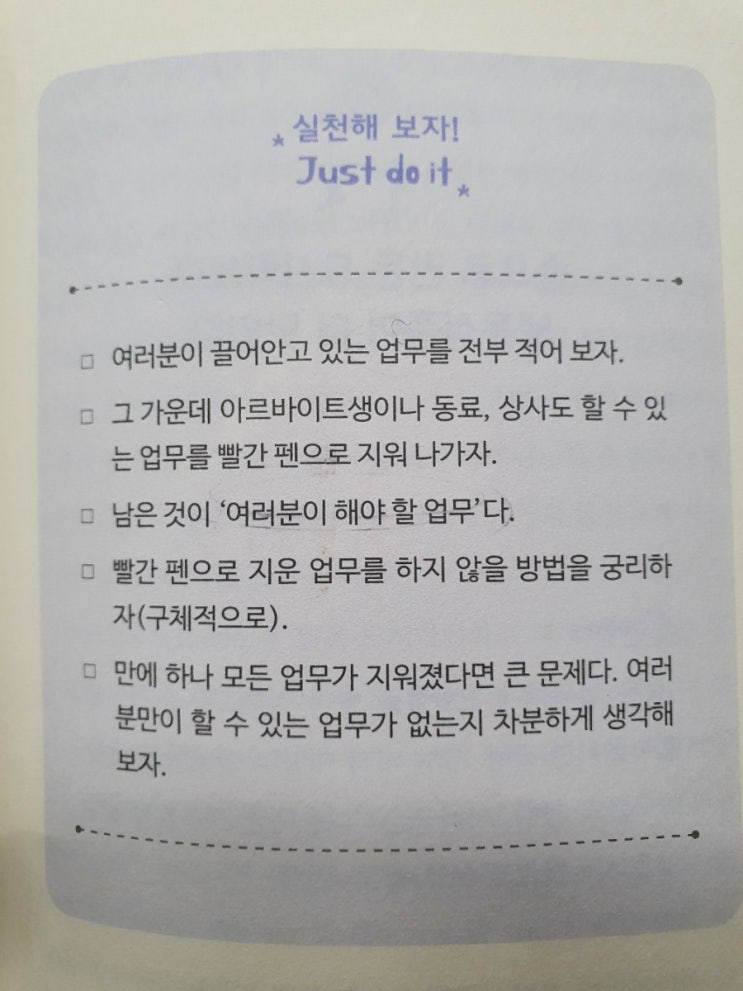 실천해 보자!
Just do it
□ 여러분이 끌어안고 있는 업무를 전부 적어 보자.
□ 그 가운데 아르바이트생이나 동료, 상사도 할 수 있
는 업무를 빨간 펜으로 지워 나가자.
□ 남은 것이 ‘여러분이 해야 할 업무’다.
□ 빨간 펜으로 지운 업무를 하지 않을 방법을 궁리하
자(구체적으로).
□ 만에 하나 모든 업무가 지워졌다면 큰 문제다. 여러
분만이 할 수 있는 업무가 없는지 차분하게 생각해
보자.